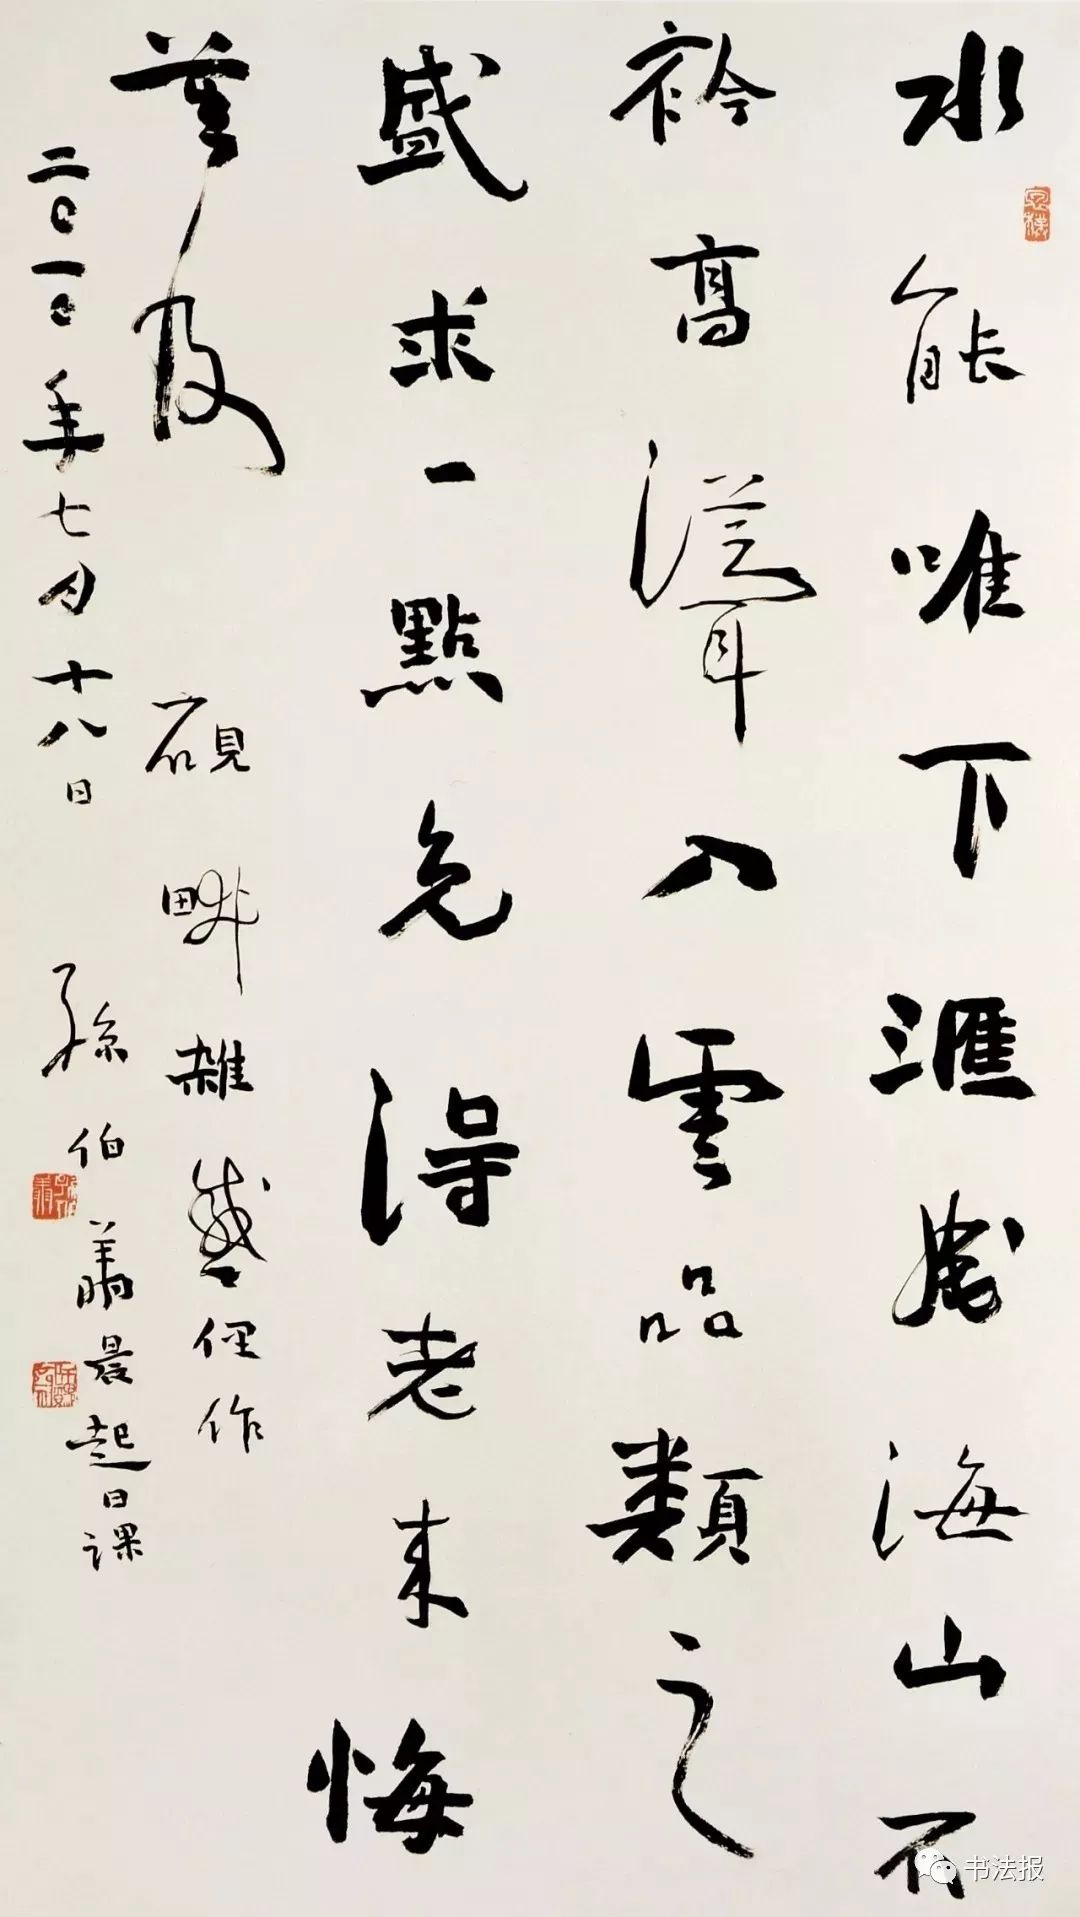 水能唯下滙成海山不
矜高漎聳入雲品類之
盛求一點免得老来悔
萬及
硯畔雜感俚作
二〇一〇年七月十八日
孫伯翔晨起日课
书法报